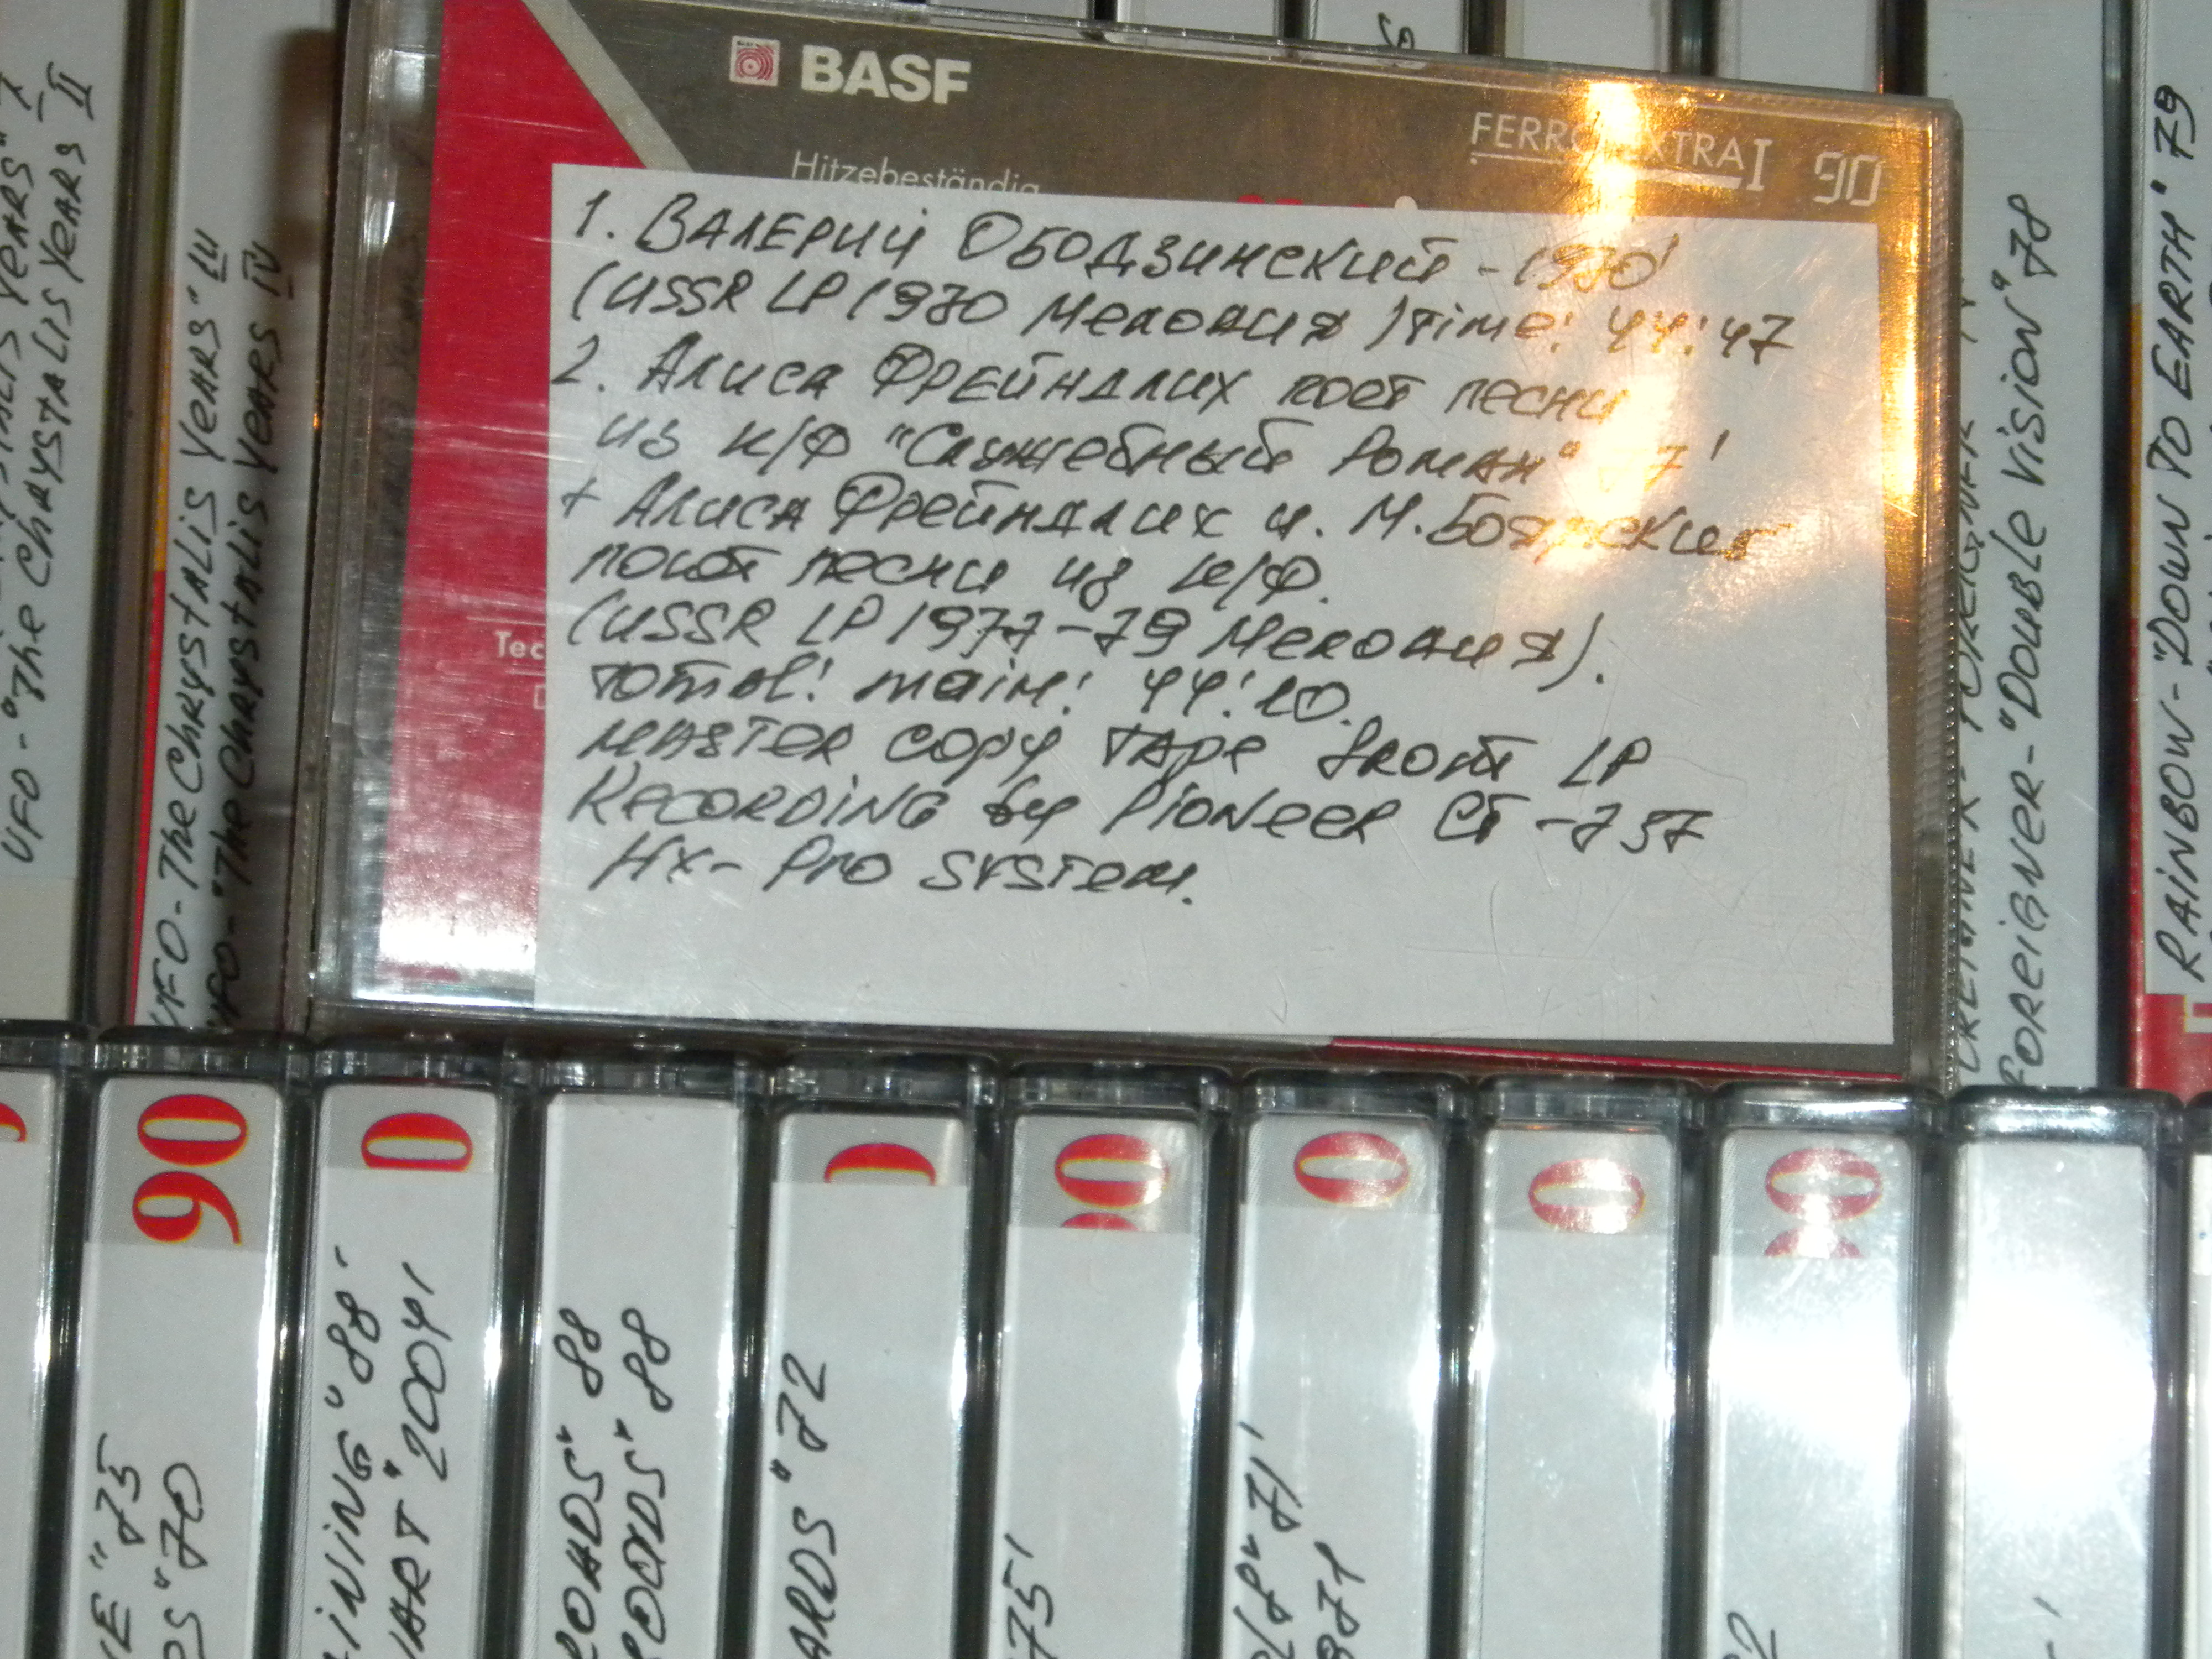 BASF
FERRO EXTRA I 90
Hitzebeständig
1. Валерий Ободзинский - 1970'
(USSR LP 1970 Мелодия) Time: 44:47
2. Алиса Фрейндлих поет песни
из к/ф "Служебный Роман" 77'
+ Алиса Фрейндлих и М. Боярский
поют песни из к/ф.
(USSR LP 1977-79 Мелодия).
Total: main: 44:10.
Master copy Tape from LP
Recording by Pioneer CT-737
Hx-Pro system.
Tec
YEARS" I
UFO-"The Chrystalis Years II
UFO-The Chrystalis Years" III
UFO-"The Chrystalis Years IV
FOREIGNER-"DOUBLE VISION" 78
RAINBOW-"DOWN TO EARTH" 79
90
0
0
0
0
IE" 75
OS" 70
INING" 88-
ART" 2004'
ROADS" 88
ROADS" 88
ARDS" 72
75'
LP" 71'
971